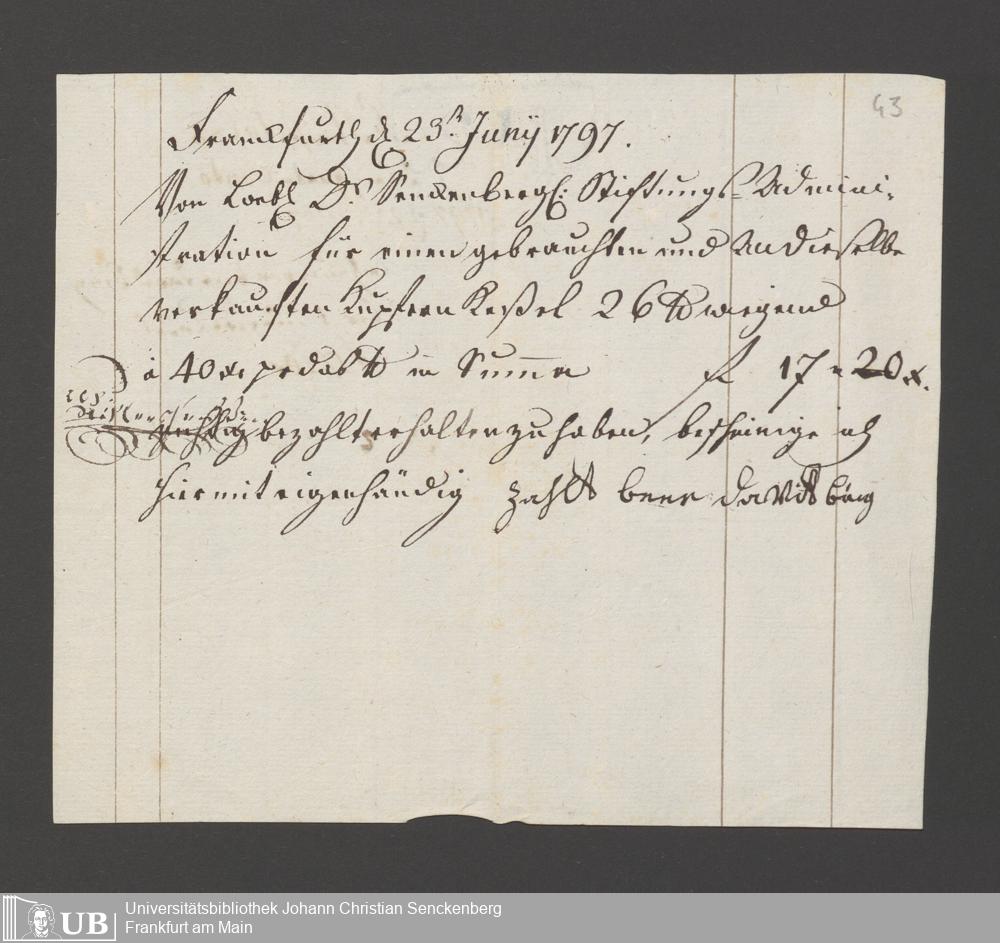 43
Franckfurth d 23t. Junÿ 1797.
Von Loebl. Dr. Senckenbergl: Stiftungs-Admini-
stration für einen gebrauchten und an dieselbe
verkauften Kupfern Keßel 26 ℔ wiegend
à 40 x. pr das ℔ in Summa f 17 " 20 x.
richtig bezahlt erhalten zu haben, bescheinige ich
hiermit eigenhändig zahlt beer david
UB
Universitätsbibliothek Johann Christian Senckenberg
Frankfurt am Main